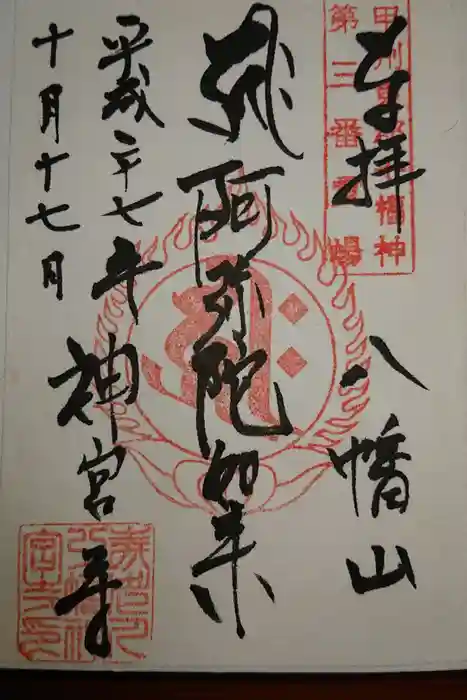 甲州東郡七福神
第三番霊場
奉拝 八幡山
阿弥陀如来
平成二十七年 神宮寺
十月十七日